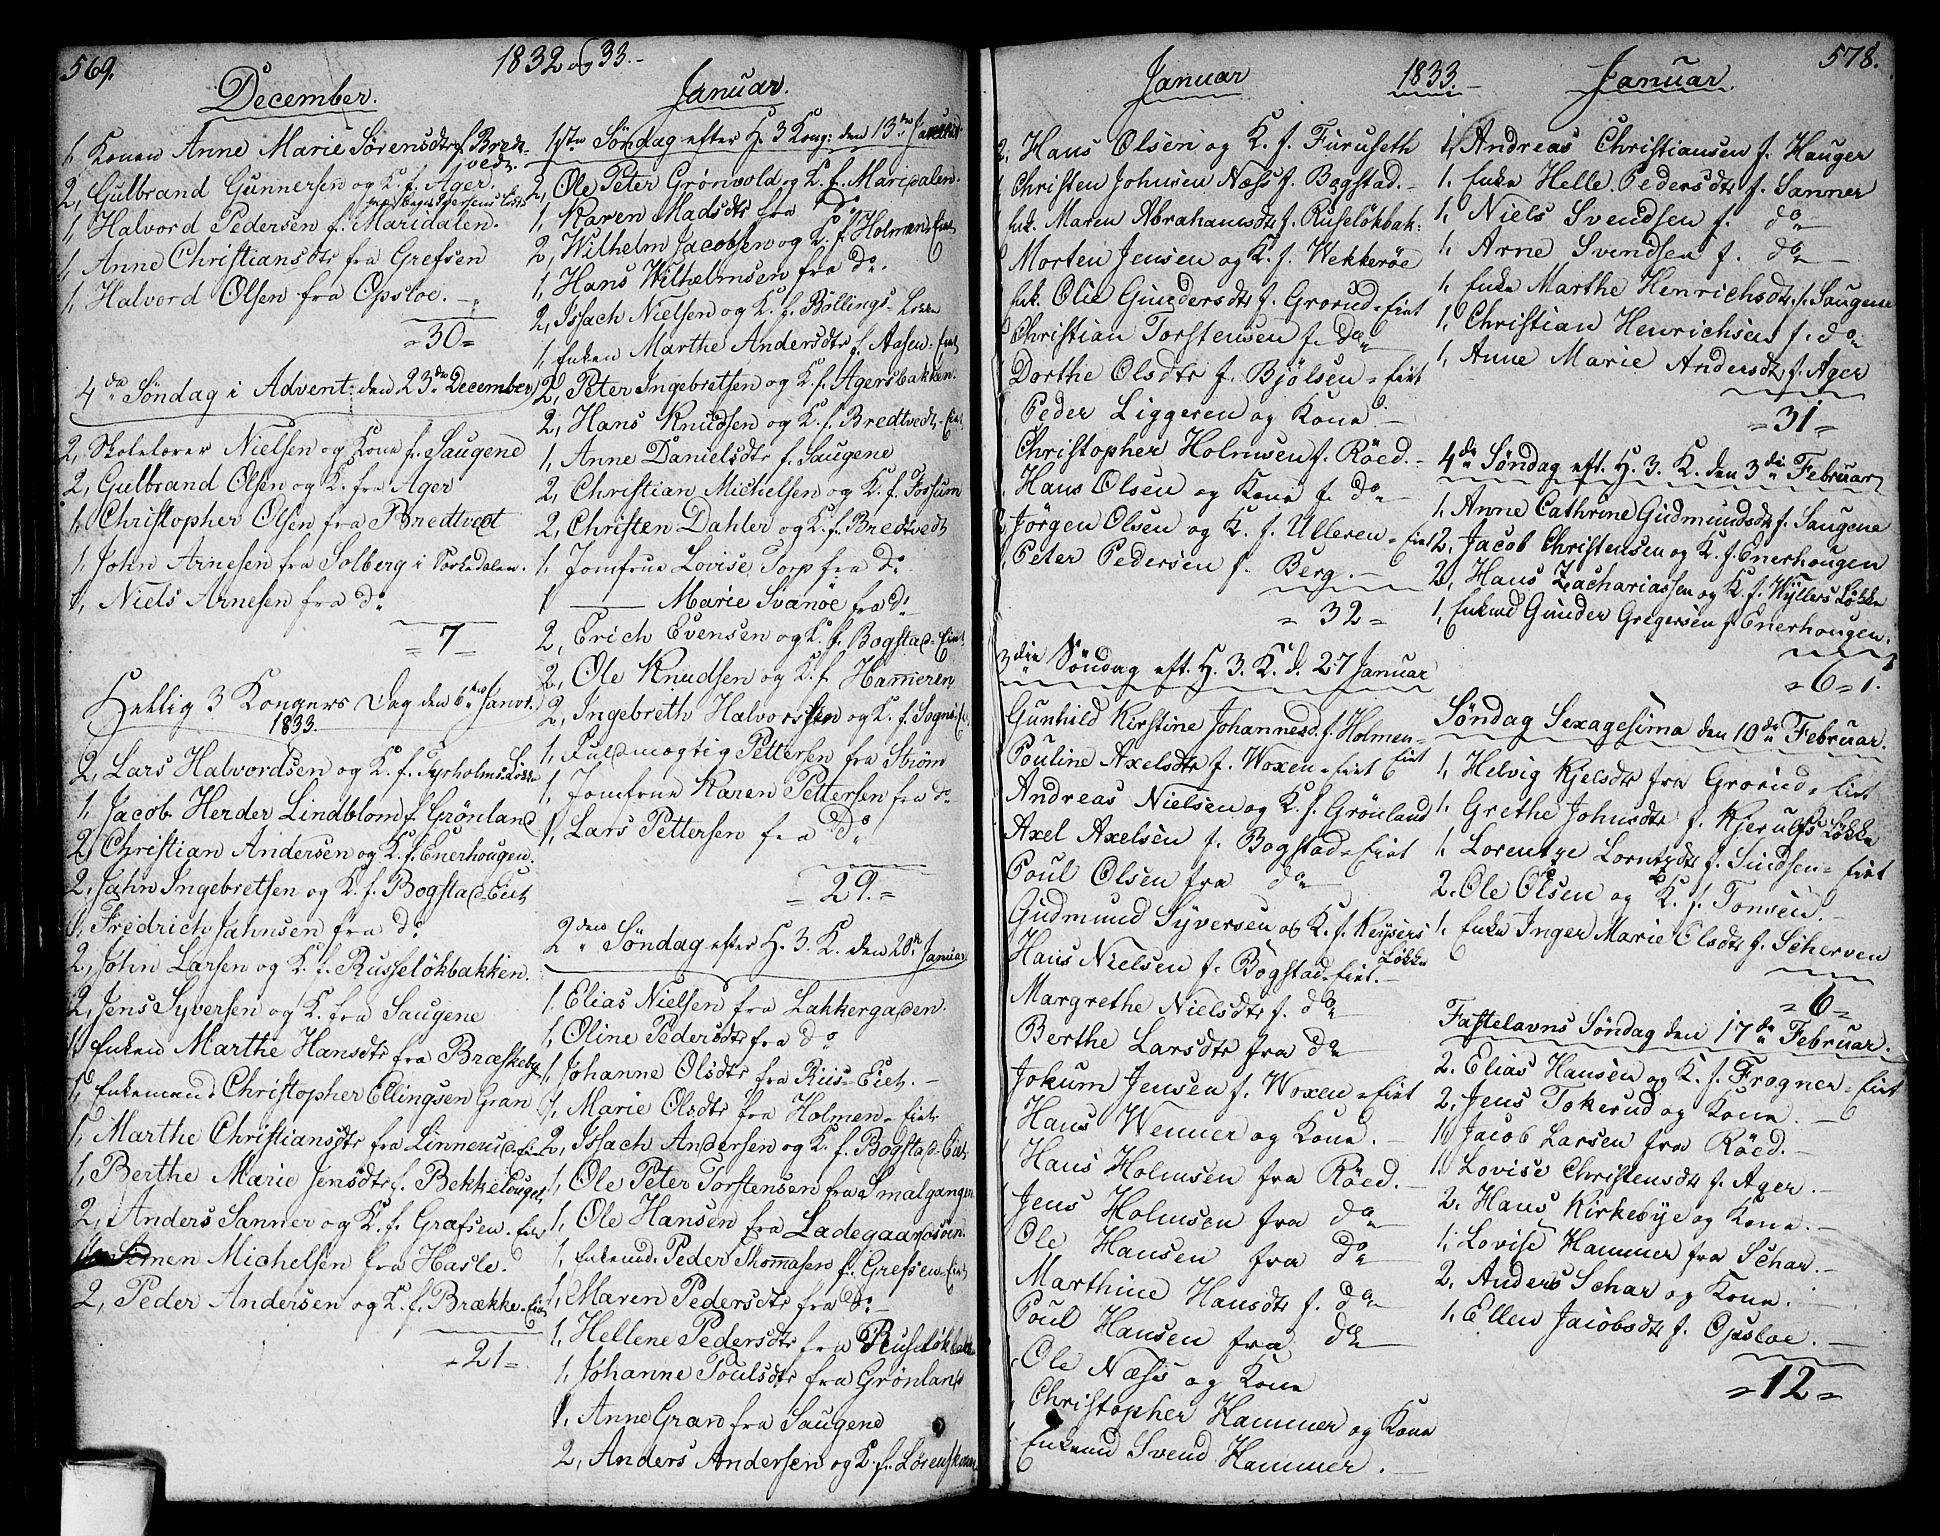 569.
1832 og 33.
December.
1, Konen Anne Marie Sørensdtr f. Bredtvedt
2, Gulbrand Gunnersen og K. f. Ager.
1, Halvord Pedersen f. Maridalen.
1, Anne Christiansdtr fra Grefsen
1, Halvord Olsen fra Opsloe.
=30=
4de Søndag i Advent: den 23de December
2, Skolelærer Nielsen og Kone f. Saugene
2, Gulbrand Olsen og K. fra Ager
1, Christopher Olsen fra Bredtvedt
1, John Arnesen fra Solberg i Sørkedalen.
1, Niels Arnesen fra do
=7=
Hellig 3 Kongers Dag den 6te Janvr.
1833.
2, Lars Halvordsen og K. f. Løkke
1, Jacob Herder Lindblom f. Grønland
2, Christian Andersen og K. f. Enerhougen.
2, John Ingebretsen og K. f. Bogstad-Eiet
1, Fredrich Jahnsen fra do
2, John Larsen og K. f. Russeløkbakken.
2, Jens Syversen og K. fra Saugene
1, Enken Marthe Hansdtr fra Bræskeby
1, Enkemand Christopher Ellingsen Gran
1, Marthe Christiansdtr fra Linnerud-Eiet
1, Berthe Marie Jensdtr f. Bekkelouget
2, Anders Sanner og K. f. Græfsen-Eiet
Simen Michelsen fra Hasle.
2, Peder Andersen og K. f. Brække-Eiet
=21=
Januar.
1ste Søndag efter H. 3 Kong: den 13de Januar
2, Ole Peter Grønvold og K. f. Maridalen.
1, Karen Madsdtr fra do
2, Wilhelm Jacobsen og K. f. Holmen-Eiet
1, Hans Wilhelmsen fra do.
2, Issach Nielsen og K. f. Bøllings-Løkke
1, Enken Marthe Andersdtr f. Aasen-Eiet
2, Peter Ingebretsen og K. f. Agersbakken.
2, Hans Knudsen og K. f. Bredtvedt-Eiet
1, Anne Danielsdtr f. Saugene
2, Christian Michelsen og K. f. Fossum
2, Christen Dahler og K. f. Bredtvedt
1, Jomfrue Lovise Torp fra do
1 —— Marie Svanøe fra do
2, Erich Evensen og K. f. Bogstad-Eiet
2, Ole Knudsen og K. f. Hammeren
2, Ingebreth Halvorssen og K. f. Sogns-Ei.
1, Fuldmægtig Pettersen fra Strøm
1, Jomfrue Karen Pettersen fra do
1, Lars Pettersen fra do
=29.=
2den Søndag efter H. 3. K. den 20de Januar
1. Elias Nielsen fra Lakkergaden.
1, Oline Pedersdtr fra do
1, Johanne Olsdtr fra Riis-Eiet.
1, Marie Olsdtr fra Holmen-Eiet
2, Issach Andersen og K. f. Bogstad-Eiet
1, Ole Peter Torstensen fra Smalgangen
1, Ole Hansen fra Ladegaardsøen.
1, Enkemd. Peder Thommasen f. Grefsen-Eiet
1, Maren Pedersdtr fra do
1, Hellene Pedersdtr fra Ruseløkbakk
1, Johanne Poulsdtr fra Grønland
1, Anne Gran fra Saugene
2, Anders Andersen og K. f. Lørenskoven
578.
1833.
Januar
2, Hans Olsen og K. f. Furuseth
Christen Johnsen Næss f. Bogstad.
Enk. Maren Abrahamsdtr f. Ruseløkbak:
Morten Jensen og K. f. Wekkerøe
Enk. Olie Gundersdtr f. Grorud-Eiet
Christian Torstensen f. do
Dorthe Olsdtr f. Bjølsen-Eiet
Peder Liggeren og Kone.
Christopher Holmsen f. Röed.
Hans Olsen og Kone f. do
Jørgen Olsen og K. f. Ulleren-Eiet
Peter Pedersen f. Berg.
=32=
3die Søndag eft. H. 3. K. d. 27 Januar
Gunhild Kirstine Johannesd. f. Holmen-Eiet
Pouline Axelsdtr f. Woxen-Eiet
Andreas Nielsen og K. f. Grønland
Axel Axelsen f. Bogstad-Eiet
Poul Olsen fra do
Gudmund Syversen og K. f. Keysers Løkke
Hans Nielsen f. Bogstad-Eiet.
Margrethe Nielsdtr f. do
Berthe Larsdtr fra do
Jokum Jensen f. Woxen-Eiet
Hans Wenner og Kone.
Hans Holmsen fra Röed.
Jens Holmsen fra do
Ole Hansen fra do
Marthine Hansdtr f. do
Poul Hansen fra do
Ole Næss og Kone
Christopher Hammer og Kone
Enkemd Svend Hammer.
Januar.
1, Andreas Christiansen f. Hauger
1. Enke Helle Pedersdtr f. Sanner
1, Niels Svendsen f. do
1, Arne Svendsen f. do
1, Enke Marthe Henrichsdtr f. Saugene
1, Christian Henrichsen f. do
1, Anne Marie Andersdtr f. Ager
=31=
4de Søndag eft. H. 3. K. den 3die Februar
1, Anne Cathrine Gudmundsdtr f. Saugene
2, Jacob Christensen og K. f. Enerhougen
2, Hans Zachariassen og K. f. Wyllers Løkke
1, Enkemd Gunder Gregersen f. Enerhougen.
=6=1.
Søndag Sexagesima den 10de Februar.
1, Helvig Kjelsdtr fra Grorud-Eiet
1. Grethe Johnsdtr f. Kjerulfs Løkke
1. Lorentze Lorntzdtr f. Sindsen-Eiet
2. Ole Olsen og K. f. Tonsen.
1. Enke Inger Marie Olsdtr f. Scherven
=6=
Fastelavns Søndag den 17de Februar.
2. Elias Hansen og K. f. Frogner-Eiet
2, Jens Tokerud og Kone.
1, Jacob Larsen fra Röed.
1. Lovise Christensdtr f. Ager.
2. Hans Kirkebye og Kone.
1, Lovise Hammer fra Schar.
2, Anders Schar og Kone.
1, Ellen Jacobsdtr f. Opsloe.
=12=